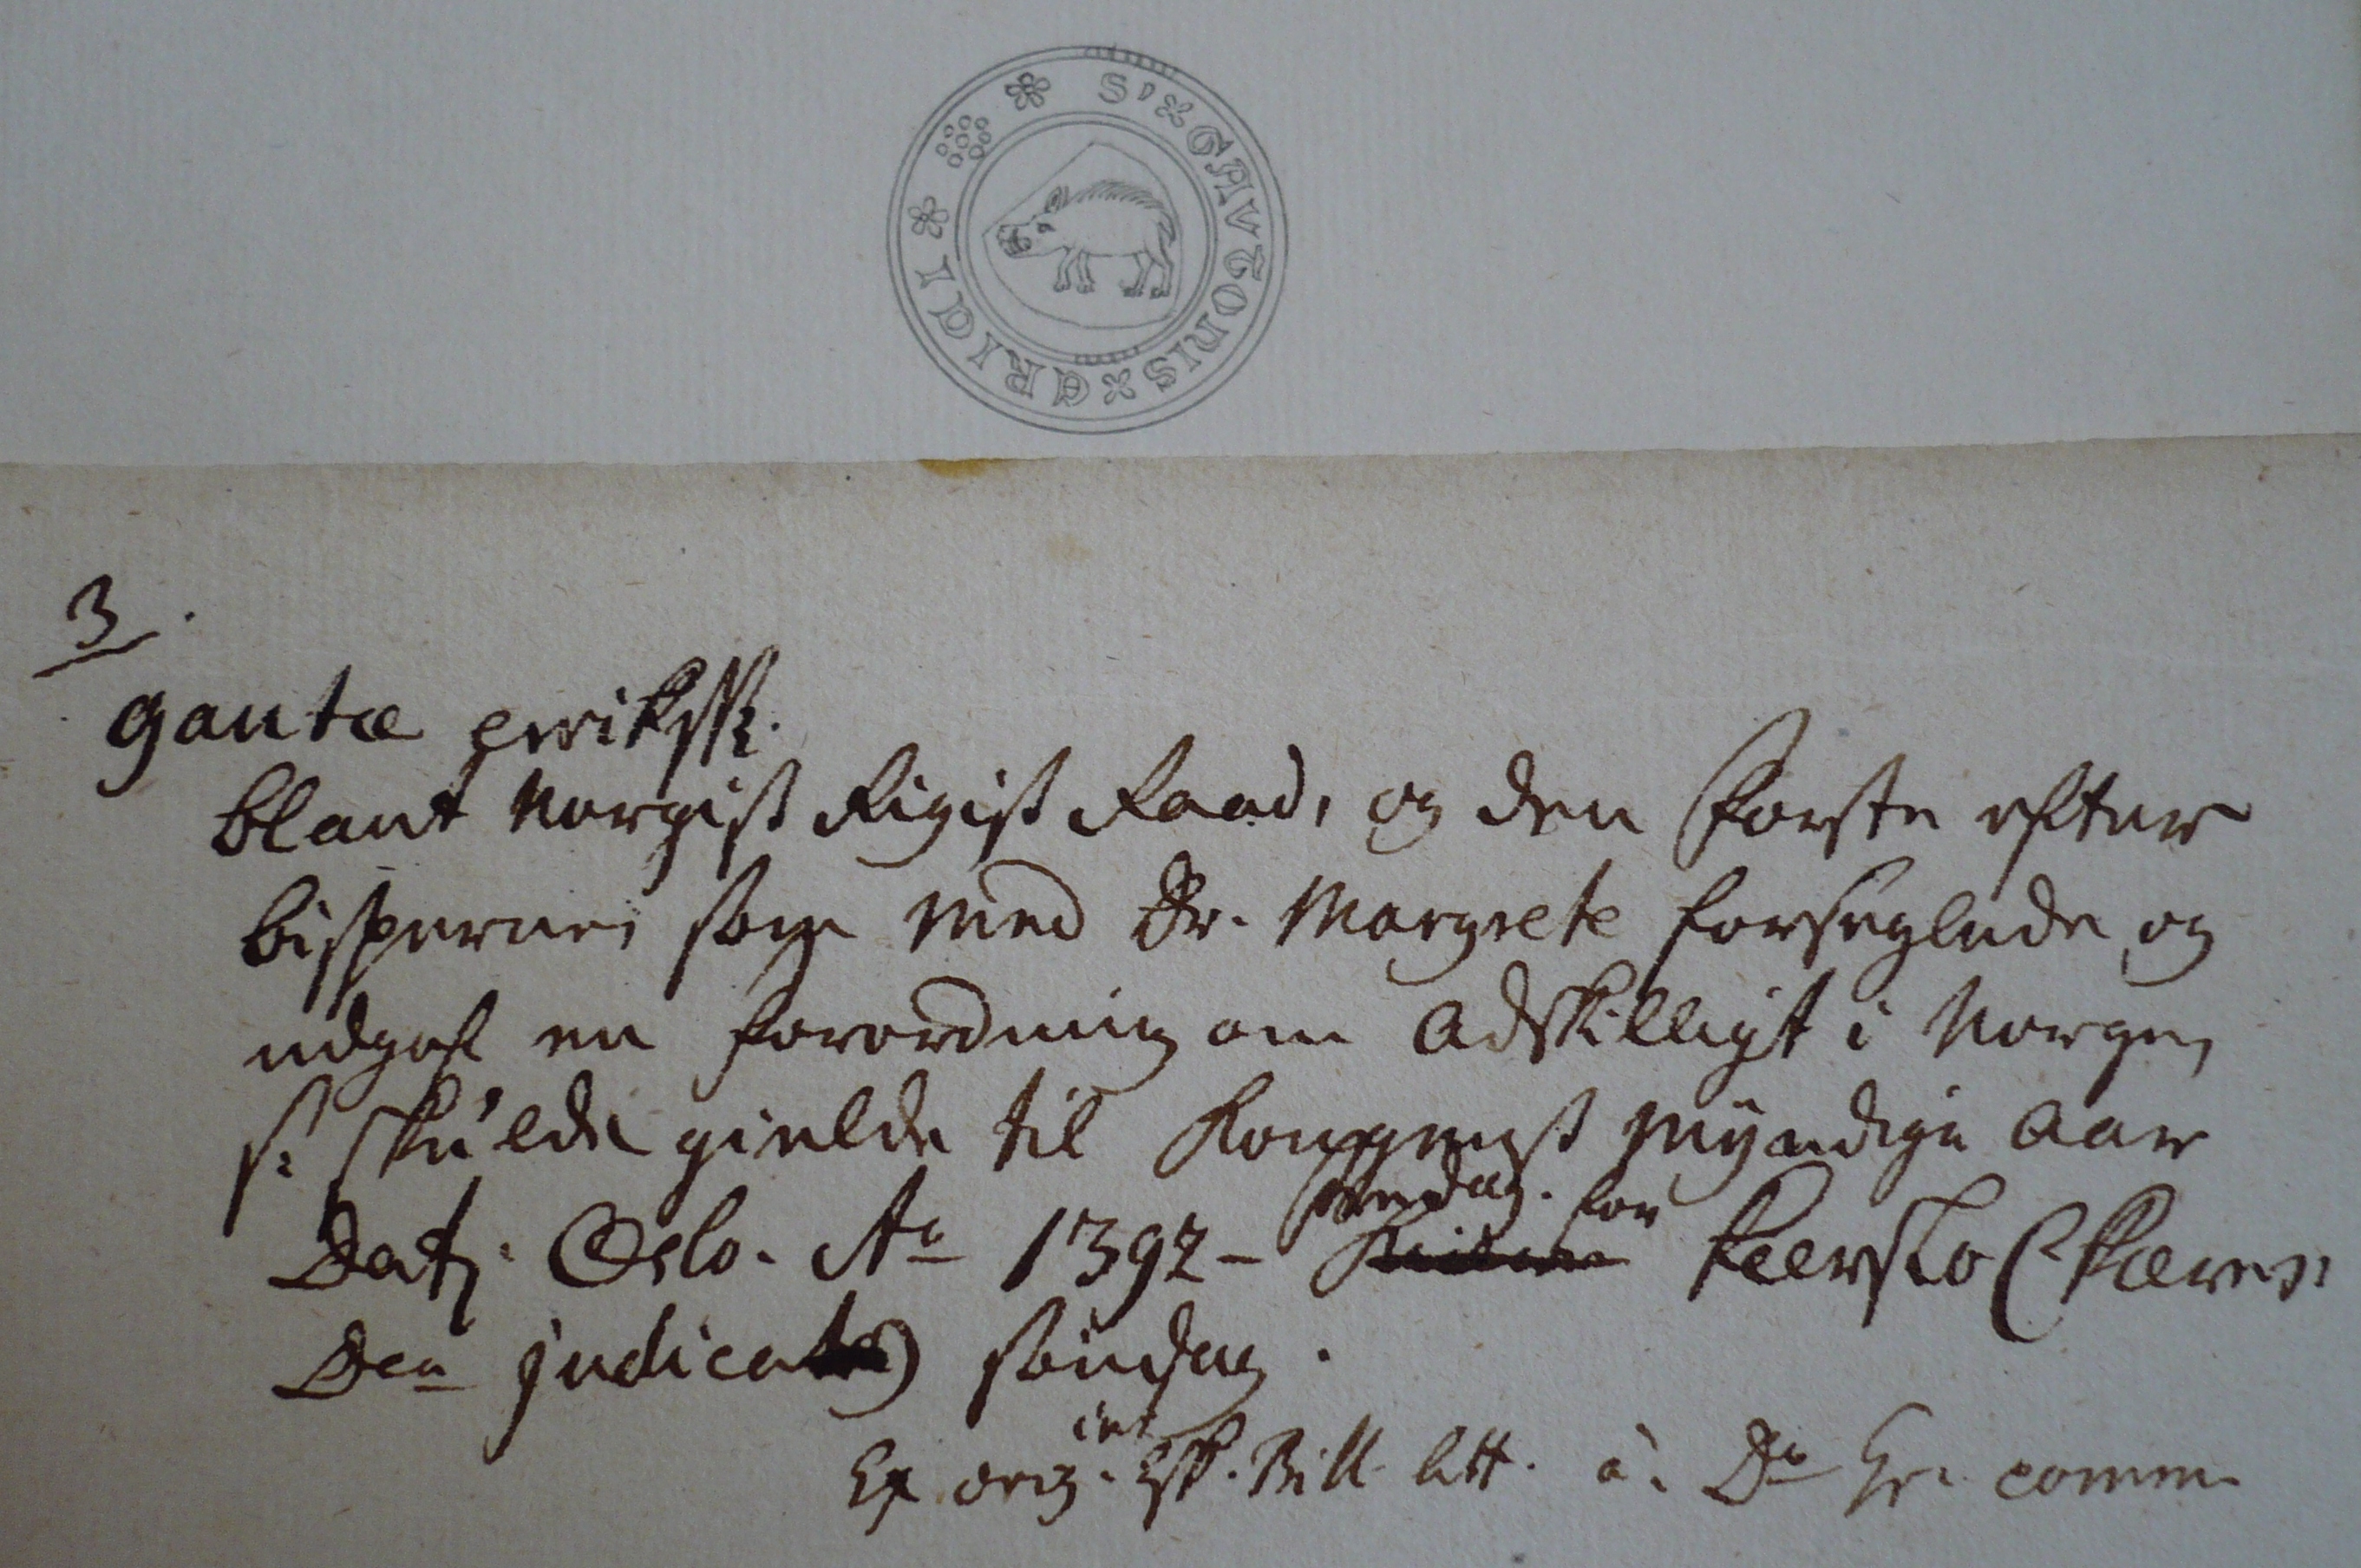 S' GAVTONIS ERICI
3
gautæ eriksß.
blant Norgiß Rigiß Raad, og den første efter
bisperne, som med Dr. Margrete forseglede og
udgaf en forordning om Adskilligt i Norge,
s: skulde gielde til Kongens myndige Aar
Dat. Oslo. Ao 1392 - for kærsto (kæres:
Dca judica) söndag.
Ex orig. int Esk. Bill. litt. a. Do Gr. comm.